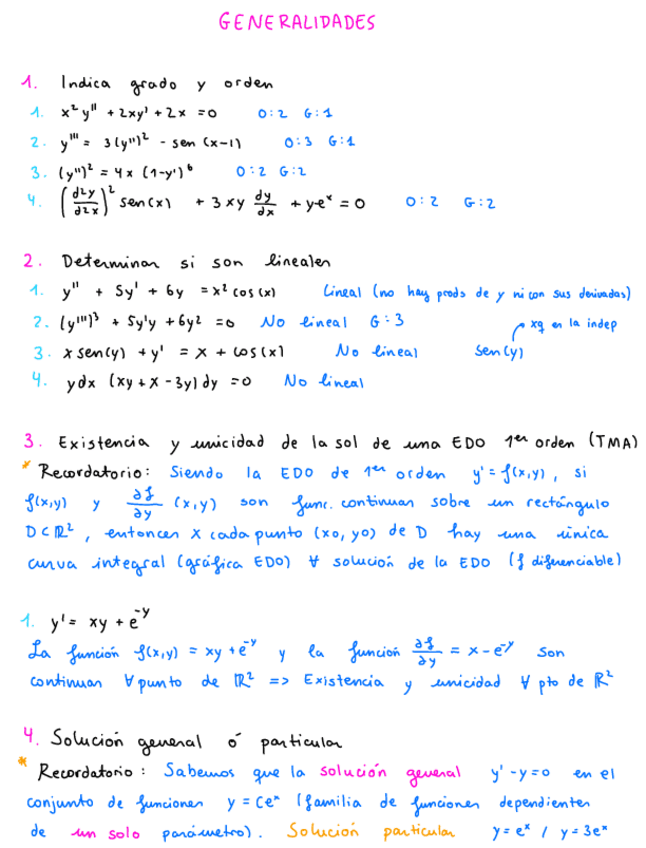 GENERALIDADES
1. Indica grado y orden
1. x² y'' + 2xy' + 2x = 0 O:2 G:1
2. y''' = 3(y'')² - sen (x-1) O:3 G:1
3. (y'')² = 4x (1-y')⁶ O:2 G:2
4. (d²y/d²x)² sen(x) + 3xy dy/dx + ye^x = 0 O:2 G:2
2. Determinar si son lineales
1. y'' + 5y' + 6y = x² cos(x) Lineal (no hay prods de y ni con sus derivadas)
2. (y''')³ + 5y'y + 6y² = 0 No lineal G:3
3. x sen(y) + y' = x + cos(x) No lineal sen(y) xq en la indep
4. ydx (xy + x - 3y) dy = 0 No lineal
3. Existencia y unicidad de la sol de una EDO 1er orden (TMA)
* Recordatorio: Siendo la EDO de 1er orden y' = f(x,y), si
f(x,y) y ∂f/∂y (x,y) son func. continuas sobre un rectángulo
D⊂ℝ², entonces x cada punto (x0, y0) de D hay una única
curva integral (gráfica EDO) ∀ solución de la EDO (f diferenciable)
1. y' = xy + e^-y
La función f(x,y) = xy + e^-y y la función ∂f/∂y = x - e^-y son
continuas ∀ punto de ℝ² => Existencia y unicidad ∀ pto de ℝ²
4. Solución general ó particular
* Recordatorio: Sabemos que la solución general y' - y = 0 en el
conjunto de funciones y = Ce^x (familia de funciones dependientes
de un solo parámetro). Solución particular y = e^x / y = 3e^x